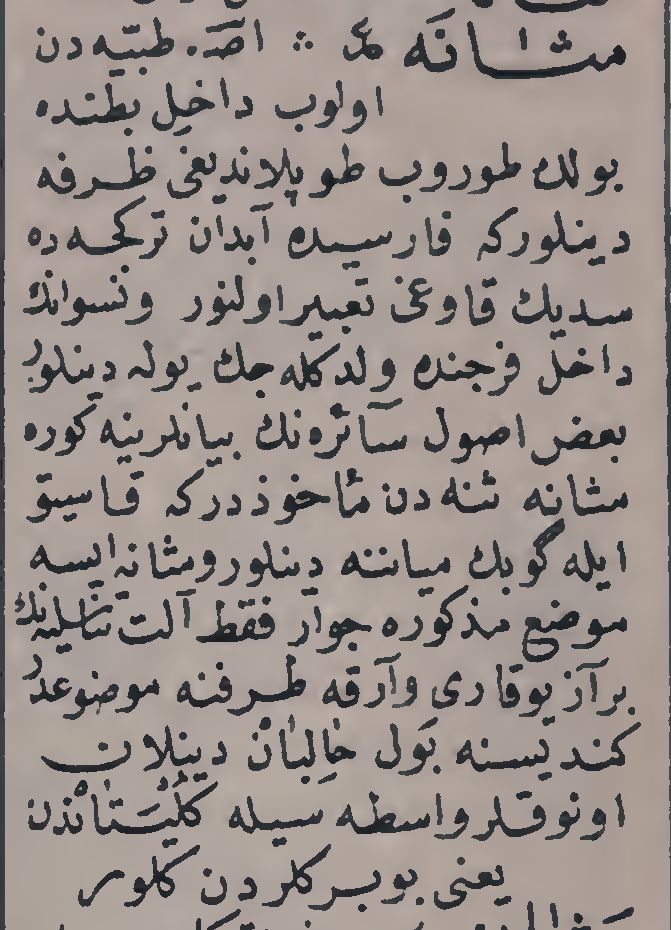 مثانه ع ∴ اصـ. طبيّه دن
اولوب داخل بطنده
بولك طوروب طوپلانديغی ظرفه
دينلوركه فارسيده آبدان تركجه ده
سديك قاوغی تعبير اولنور ونسوانك
داخل فرجنده ولد كله جك يوله دينلور
بعض اصول سائره نك بيانلرينه كوره
مثانه ثنه دن مأخوذدركه قاسيق
ايله گوبك مياننه دينلور ومثانه ايسه
موضع مذكوره جوار فقط آلت تناسليه نك
برآز يوقاری وآرقه طرفنه موضوعدر
كنديسنه بول حالبان دينلان
اونوقلر واسطه سيله كليتاندن
يعنی بوبركلردن كلور